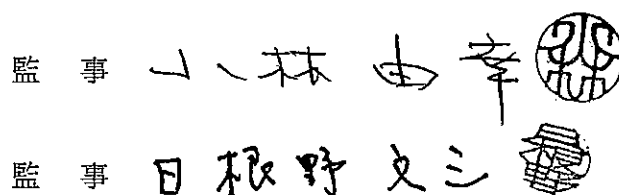 監事 小林由幸
監事 日根野文三